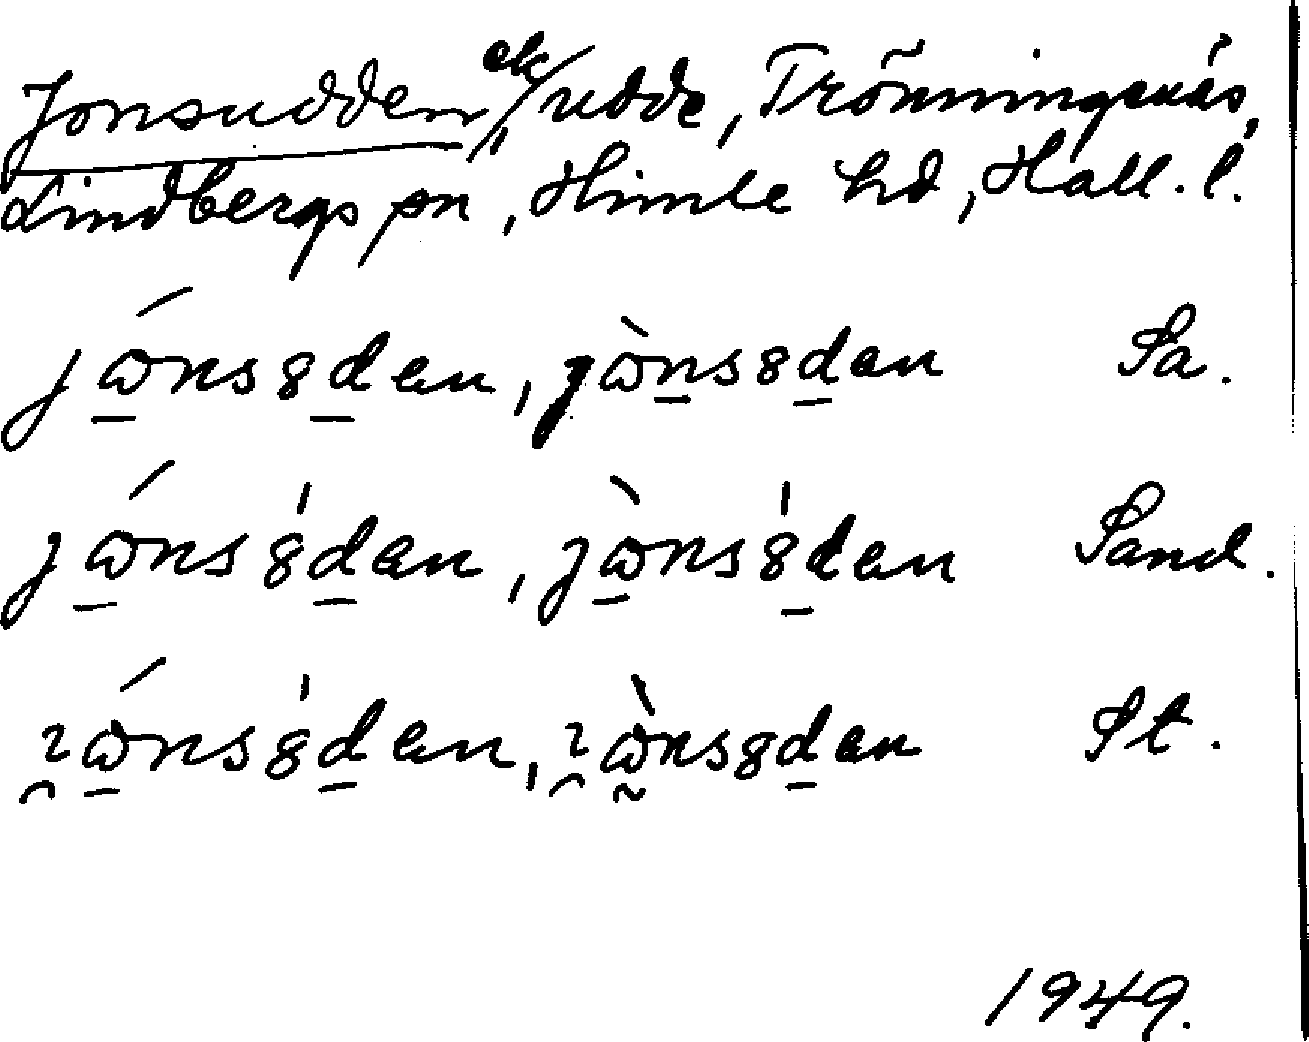 Jonsudden, ek/udde, Trönningenäs,
Lindbergs sn, Himle hd, Hall. l.
jɷ́ns8dan, jɷ̀ns8dan Sa.
jɷ́ns8́dan, jɷ̀ns8́dan Sand.
ɷ́ns8́dan, ɷ̀ns8dan St.
1949.